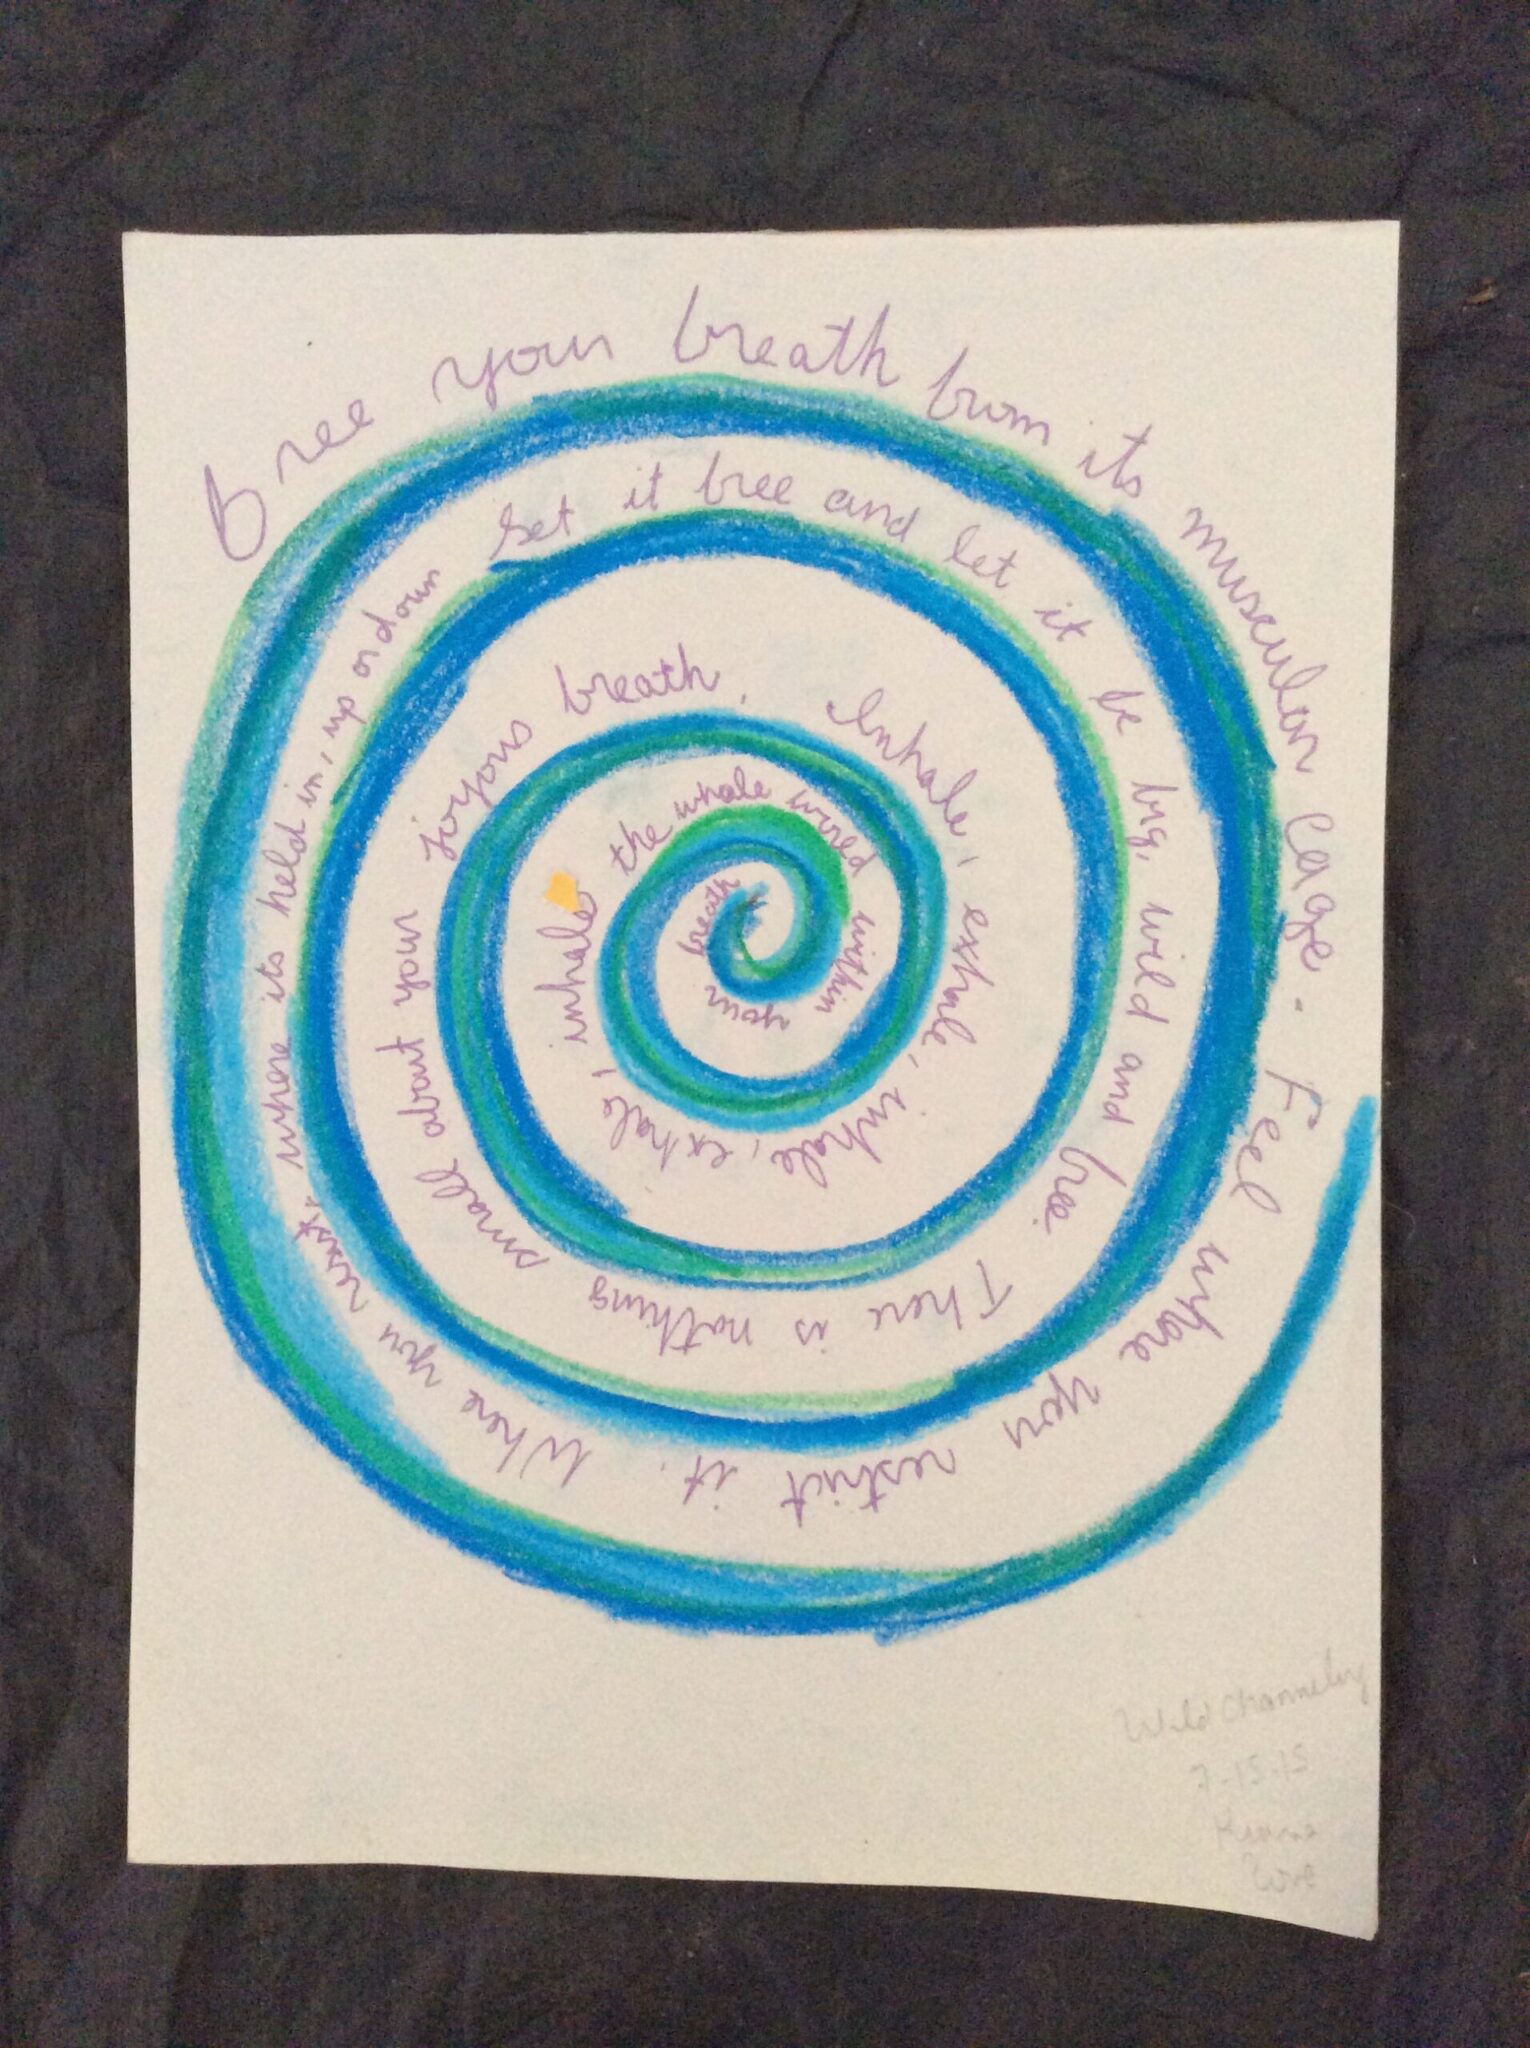 Free your breath from its muscular cage. Feel where you restrict it. Where you resist, where its held in, up or down
Set it free and let it be big, wild and free. There is nothing small about your joyous breath. Inhale, exhale, inhale, exhale, inhale the whale wired within your breath
Wild Channeling
7-15-15